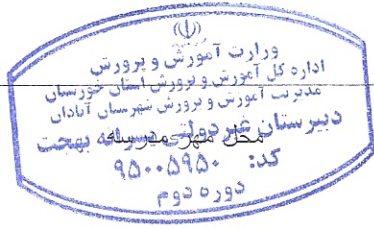 وزارت آموزش و پرورش
اداره کل آموزش و پرورش استان خوزستان
مدیریت آموزش و پرورش شهرستان آبادان
دبیرستان غیر دولتی پسرانه بهجت
محل مهر مدرسه
کد: ۹۵۰۰۵۹۵۰
دوره دوم